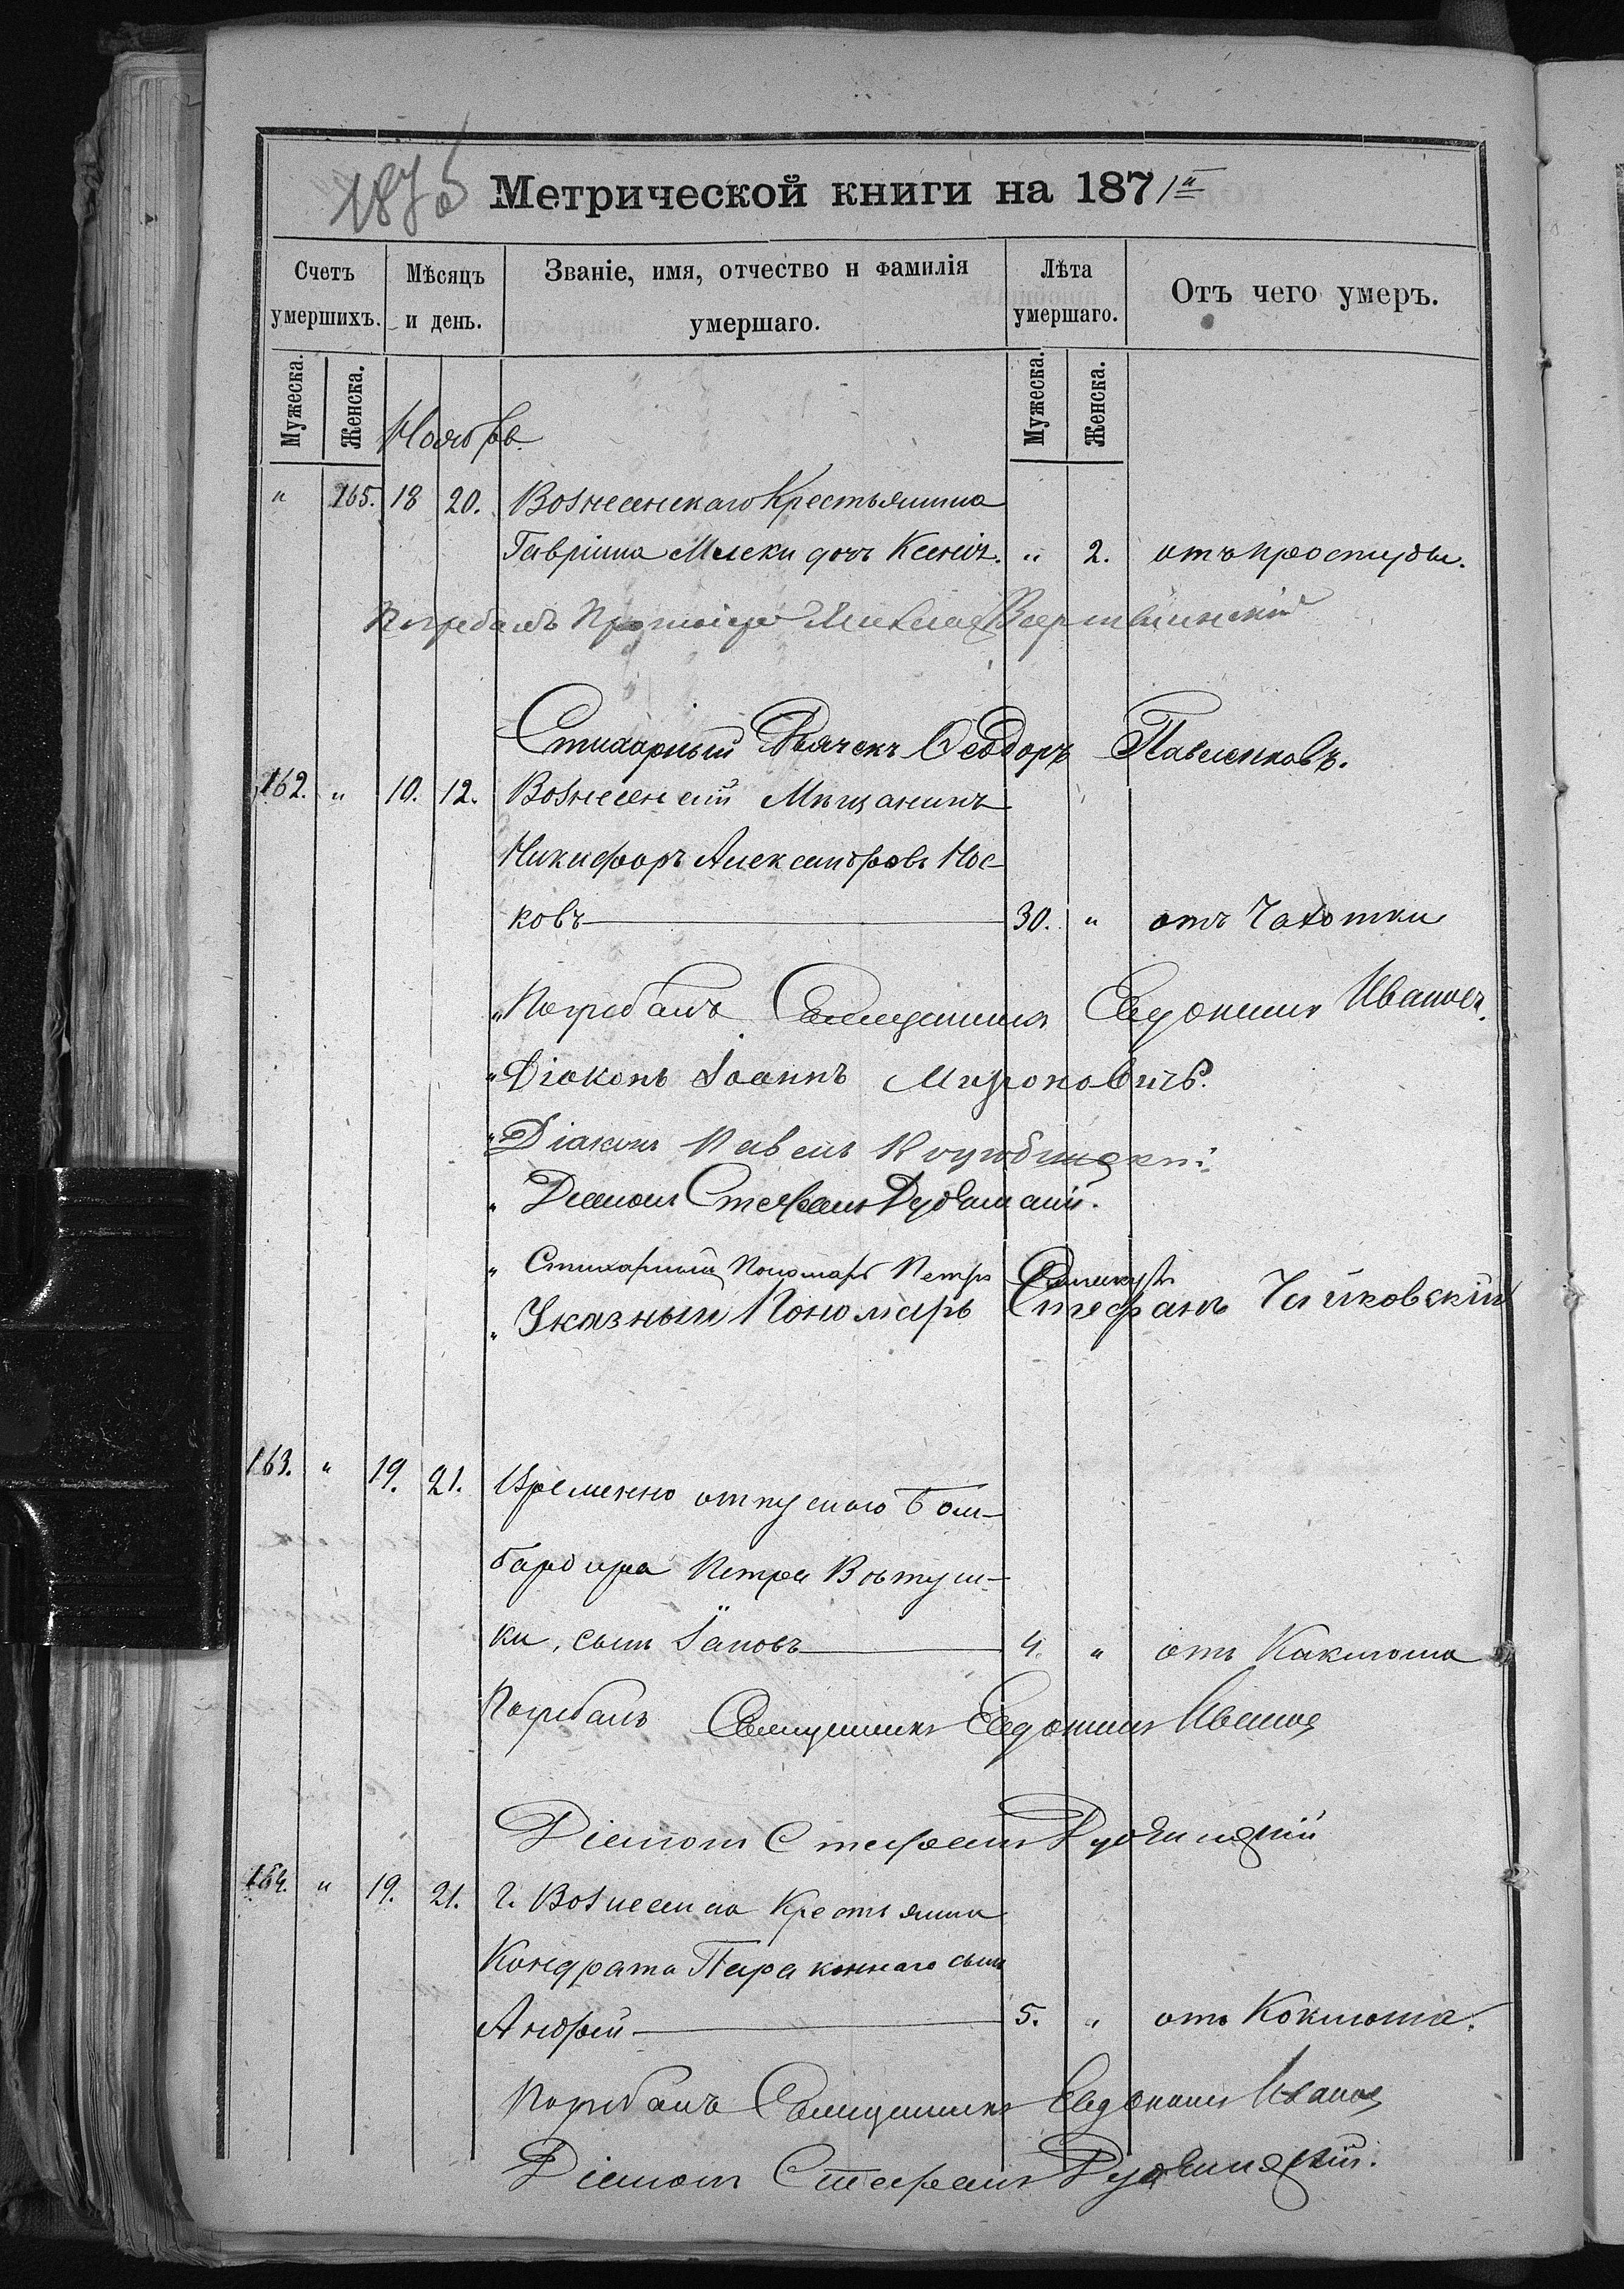 1875
Метрической книги на 1871й
Счетъ умершихъ. Мѣсяцъ и день. Званіе, имя, отчество и фамилія умершаго. Лѣта умершаго. Отъ чего умеръ.
Мужеска. Женска. Мужеска. Женска.
Ноябрь.
" 165. 18 20. Вознесенскаго Крестьянина
Гавріила дочь Ксенія. " 2. отъ простуды.
Погребалъ Протоіерей
Стихарный Дьячекъ Ѳеодоръ Павленковъ.
162. " 10. 12. Вознесенскій Мѣщанинъ
Никифоръ Александровъ Нос-
ковъ 30. " отъ Чахотки
"Погребалъ Священникъ Евдокимъ Ивановъ.
"Діаконъ Іоаннъ Мироновичъ.
"Діаконъ Павелъ
" Діаконъ Стефанъ
" Стихарный Пономарь Петръ
" Указный Пономарь Стефанъ Чайковскій
163. " 19. 21. Временно отпускного Бом-
бардира Петра Вовтуш-
ки, сынъ Іаковъ 4. " отъ Каклюша
Погребалъ Священникъ Евдокимъ Ивановъ
Діаконъ Стефанъ
164. " 19. 21. г. Вознесенска Крестьянина
Кондрата сынъ
Андрей 5. " отъ Коклюша.
Погребалъ Священникъ Евдокимъ Ивановъ
Діаконъ Стефанъ